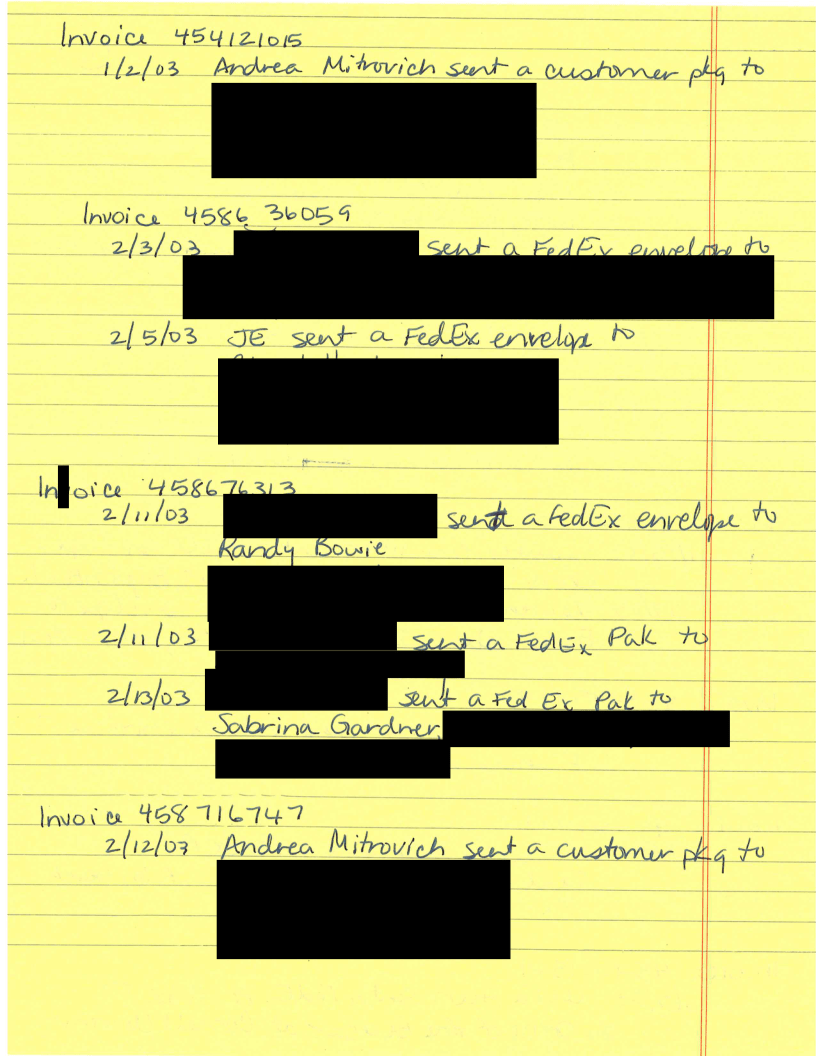 Invoice 454121015
1/2/03 Andrea Mitrovich sent a customer pkg to
Invoice 4586 36059
2/3/03 sent a FedEx envelope to
2/5/03 JE sent a FedEx envelope to
Invoice 458676313
2/11/03 sent a FedEx envelope to
Randy Bowie
2/11/03 sent a FedEx Pak to
2/13/03 sent a Fed Ex Pak to
Sabrina Gardner,
Invoice 458716747
2/12/03 Andrea Mitrovich sent a customer pkg to